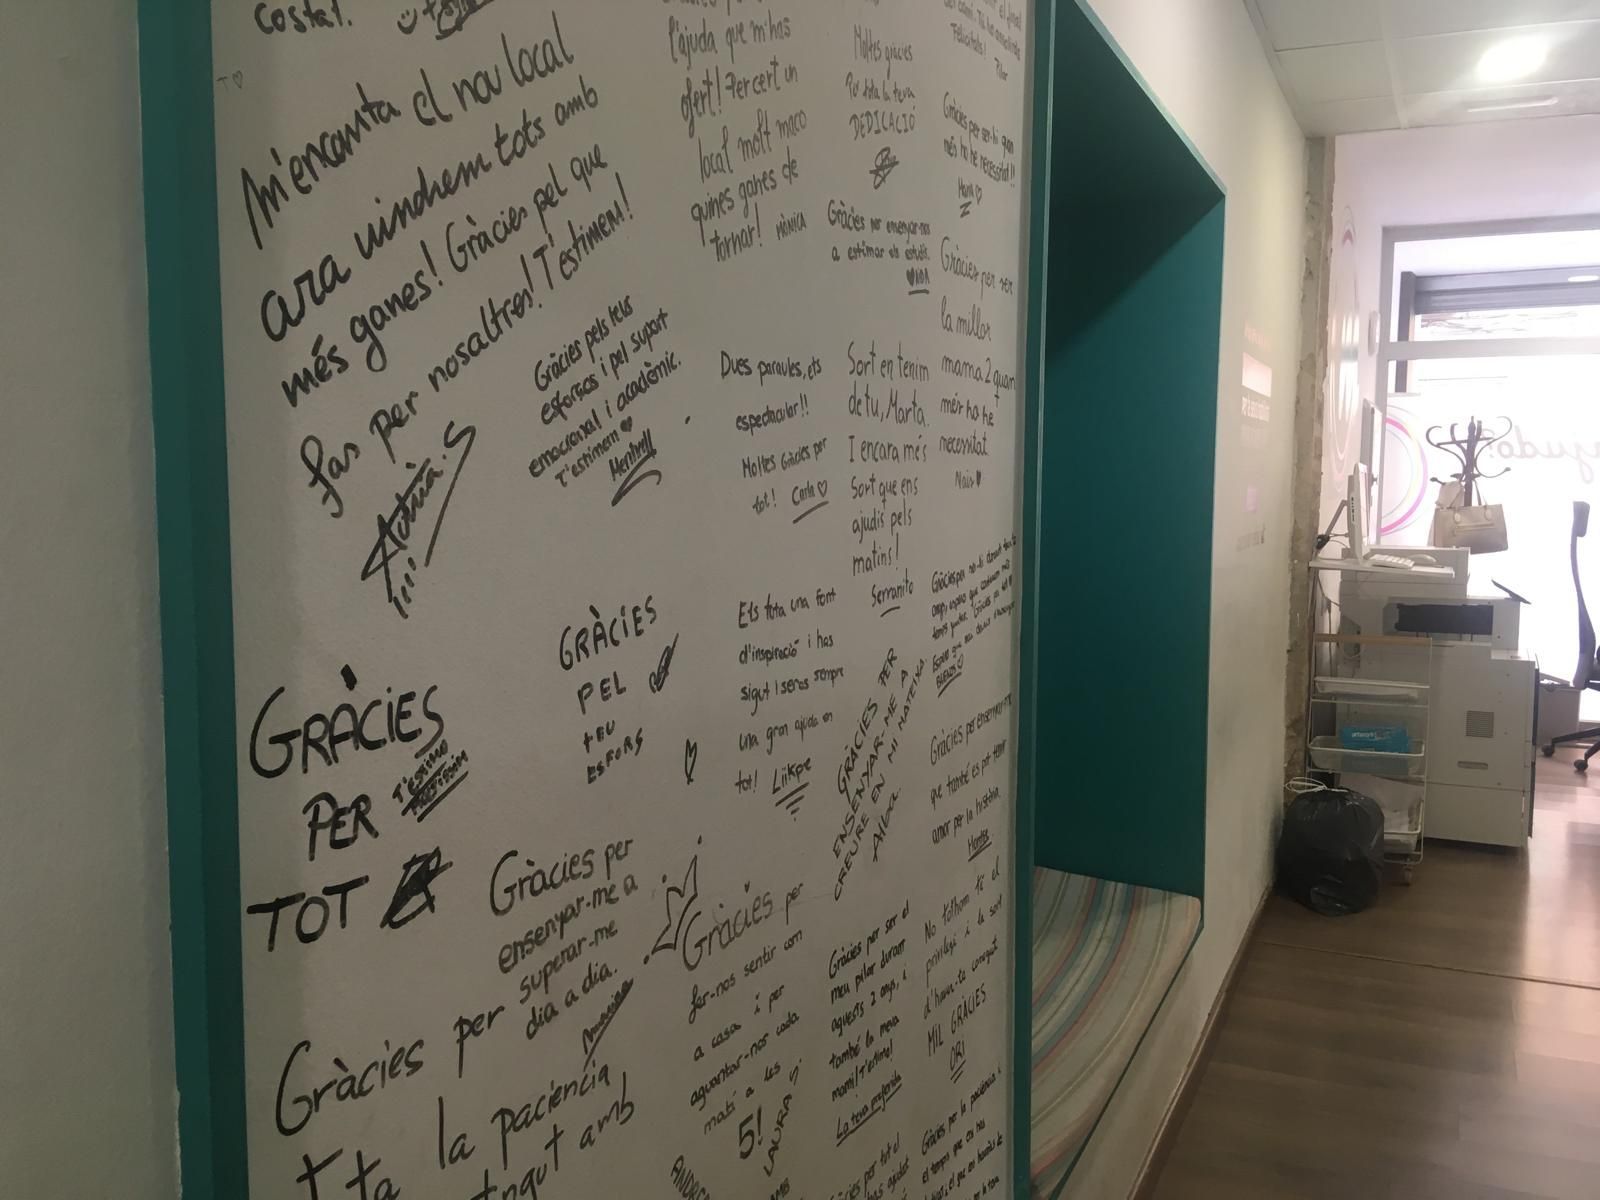 costat.
M'encanta el nou local
ara vindrem tots amb
més ganes! Gràcies pel que
fas per nosaltres! T'estimem!
Adrià.S
Gràcies pels teus
esforços i pel suport
emocional i acadèmic.
T'estimem
GRÀCIES
PER
TOT
T'ESTIMO
MOLTÍSSIM
GRÀCIES
PEL
TEU
ESFORS
Gràcies per
ensenyar-me a
superar-me
dia a dia.
Gràcies per
la paciència
tingut amb
l'ajuda que m'has
ofert! Per cert un
local molt maco
quines ganes de
tornar! MÒNICA
Dues paraules, ets
espectacular!!
Moltes Gràcies per
tot! Carla
Ets tota una font
d'inspiració i has
sigut i seras sempre
una gran ajuda en
tot! Liikpe
Gràcies per
fer-nos sentir com
a casa i per
aguantar-nos cada
matí a les
5!
LAURA S.
Moltes gràcies
Per tota la teva
DEDICACIÓ
Gràcies per ensenyar-nos
a estimar els estudis.
Sort en tenim
de tu, Marta.
I encara més
Sort que ens
ajudis pels
matins!
Serranito
GRÀCIES PER
ENSENYAR-ME A
CREURE EN MI MATEIXA
Gràcies per ser el
meu pilar durant
aquests 2 anys, i
també la meva
mami! T'estimo!
La teva preferida
Felicitats!
Pilar
Gràcies per ser-hi quan
més ho he necessitat!!
Gràcies per ser
la millor
mama 2 quan
més ho he
necessitat
Naia
Gràcies per ensenyar-me
que també es pot tenir
amor per la història.
No tothom té el
privilegi i la sort
d'haver-te conegut
MIL GRÀCIES
ORI
Gràcies per la paciència i
el temps que ens has
ajudo?